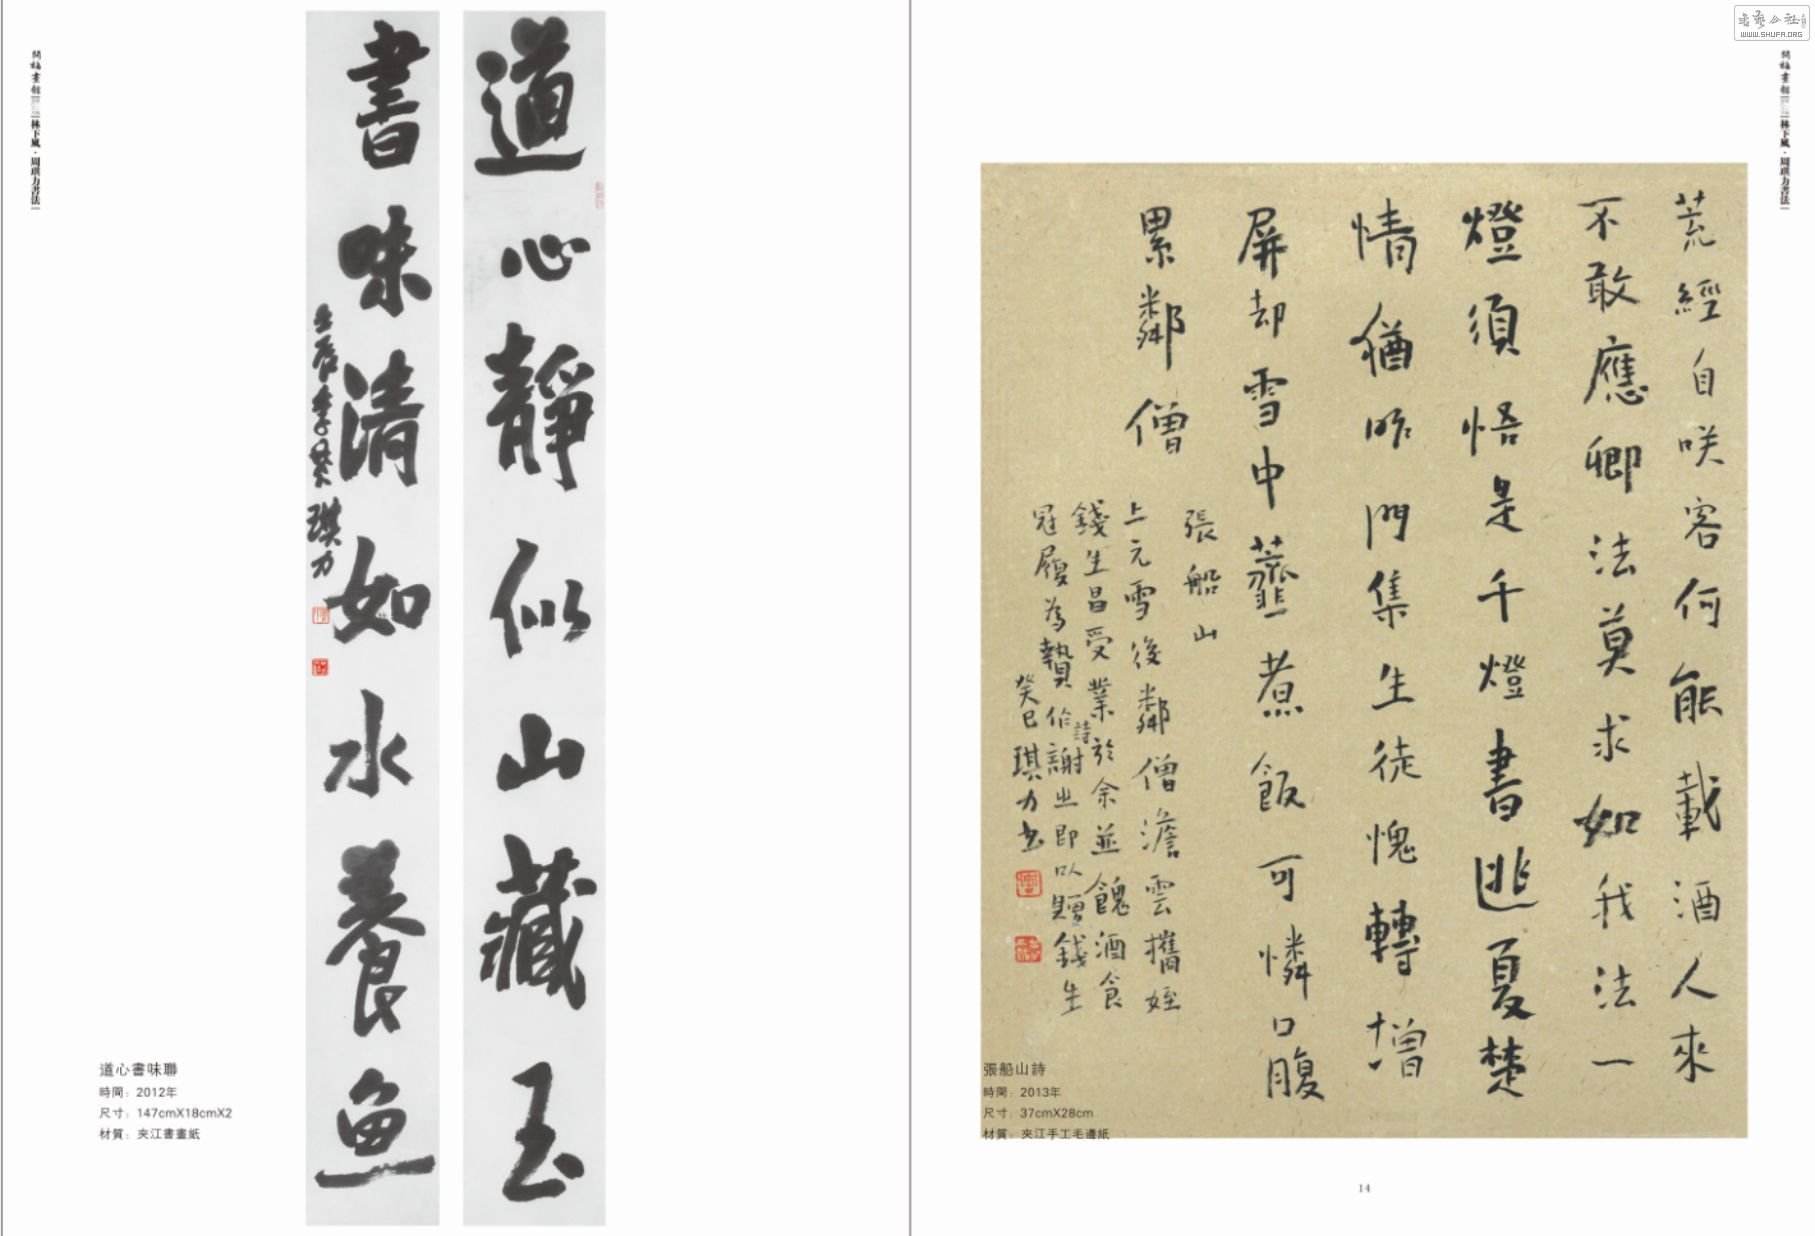 道心靜似山藏玉
書味清如水養魚
壬辰季冬琪力
道心書味聯
時間：2012年
尺寸：147cmX18cmX2
材質：夾江書畫紙
林下風·周琪力書法
荒經自咲客何能載酒人來
不敢應卿法莫求如我法一
燈須悟是千燈書逃夏楚
情猶昨門集生徒愧轉增
屏却雪中虀煮飯可憐口腹
累鄰僧
張船山
上元雪後鄰僧澹雲攜姪
錢生昌受業於余並餽酒食
冠履為贄作詩謝之即以贈錢生
癸巳琪力書
張船山詩
時間：2013年
尺寸：37cmX28cm
材質：夾江手工毛邊紙
14
林下風·周琪力書法
書藝公社
WWW.SHUFA.ORG